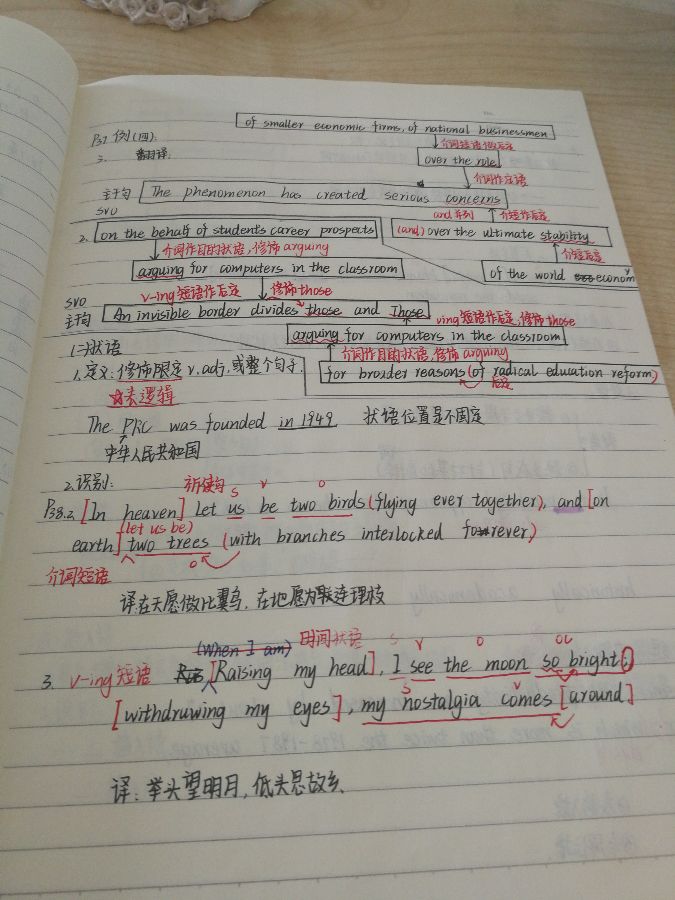 of smaller economic firms, of national businessmen
P37 例(四):
介词短语做后定
3. 翻译:
over the role
介词作定语
主干句 The phenomenon has created serious concerns
SVO
and 并列 介短作后定
2. on the behalf of students career prospects (and) over the ultimate stability
介词作目的状语,修饰 arguing 介短后定
arguing for computers in the classroom of the world economy
v-ing 短语作后定 修饰 those
SVO
主干句 An invisible border divides those and Those
ving 短语作后定,修饰 those
arguing for computers in the classroom
(二)状语
介词作目的状语,修饰 arguing
1.定义:修饰限定 v.adj.或整个句子. for broader reasons (of radical eduation reform)
后定
☆表逻辑
The PRC was founded in 1949 状语位置是不固定
中华人民共和国
2.识别:
祈使句 s v o
P38.2. [In heaven] let us be two birds (flying ever together), and [on
(let us be)
earth] two trees (with branches interlocked forever)
o
介词短语
译:在天愿做比翼鸟,在地愿为连理枝
(When I am) 时间状语 s v o oc
3. v-ing 短语 [Raising my head], I see the moon so bright;
s v
[withdruwing my eyes], my nostalgia comes [around]
译:举头望明月,低头思故乡.